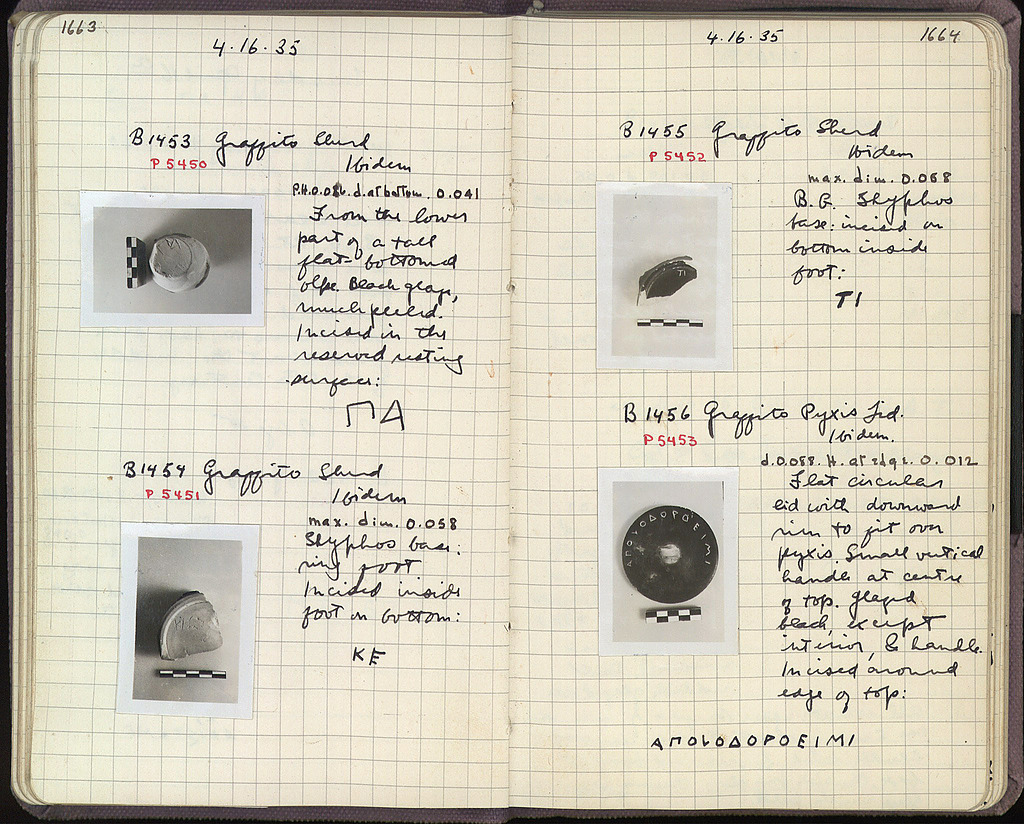 1663
4.16.35
B1453 Graffito Sherd
P 5450
Ibidem
P.H. 0.086. d. at bottom. 0.041
From the lower
part of a tall
flat-bottomed
olpe. Black glaze,
much peeled.
Incised in the
reserved resting
surface:
ΠΑ
B1454 Graffito Sherd
P 5451
Ibidem
max. dim. 0.058
Skyphos base:
ring foot
Incised inside
foot on bottom:
ΚΕ
4.16.35
1664
B1455 Graffito Sherd
P 5452
Ibidem
max. dim. 0.068
B.G. Skyphos
base: incised on
bottom inside
foot:
ΤΙ
B1456 Graffito Pyxis Lid.
P 5453
Ibidem.
d. 0.088. H. at edge. 0.012
Flat circular
lid with downward
rim to fit over
pyxis. Small vertical
handle at centre
of top. Glazed
black, except
interior, & handle.
Incised around
edge of top:
ΑΠΟΛΟΔΟΡΟΕΙΜΙ